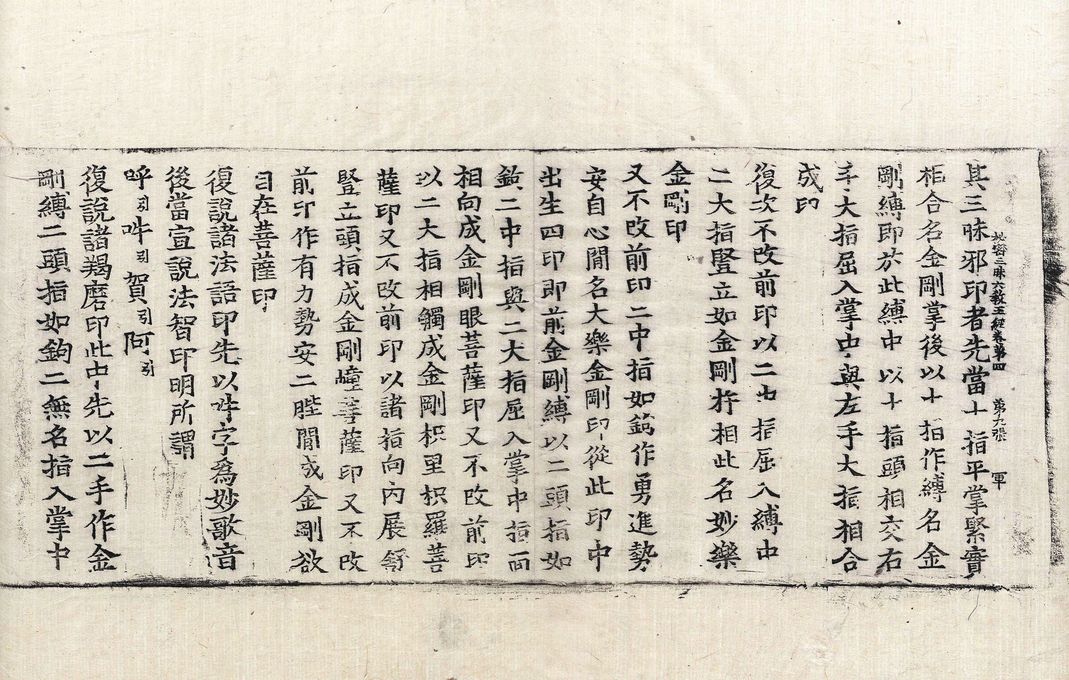 其三昧邪印者先當十指平掌緊實
祕密三昧大教王經卷第四 第九張 軍
相合名金剛掌後以十指作縛名金
剛縛即於此縛中以十指頭相交右
手大指屈入掌中與左手大指相合
成印
復次不改前印以二中指屈入縛中
二大指豎立如金剛杵相此名妙樂
金剛印
又不改前印二中指如箭作勇進勢
安自心間名大樂金剛印從此印中
出生四印即前金剛縛以二頭指如
鉤二中指與二大指屈入掌中指面
相向成金剛眼菩薩印又不改前印
以二大指相觸成金剛枳里枳羅菩
薩印又不改前印以諸指向內展舒
豎立頭指成金剛幢菩薩印又不改
前印作有力勢安二䏶間成金剛欲
自在菩薩印
復說諸法語印先以吽字為妙歌音
後當宣說法智印明所謂
呼引吽引賀引阿引
復說諸羯磨印此中先以二手作金
剛縛二頭指如鉤二無名指入掌中